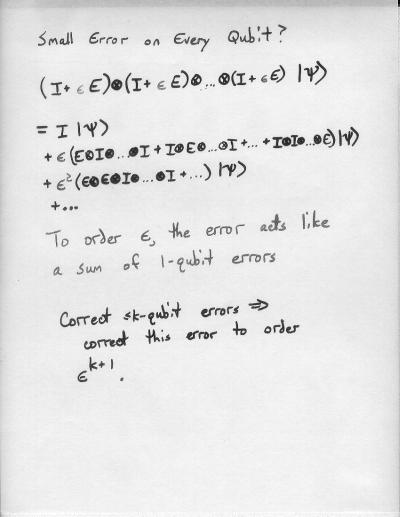 Small Error on Every Qubit?
(I+ εE)⊗(I+ εE)⊗...⊗(I+ εE) |Ψ⟩
= I |Ψ⟩
+ ε(E⊗I⊗...⊗I + I⊗E⊗...⊗I +... + I⊗I⊗...⊗E)|Ψ⟩
+ ε²(E⊗E⊗I⊗...⊗I +...) |Ψ⟩
+...
To order ε, the error acts like
a sum of 1-qubit errors
Correct ≤k-qubit errors ⇒
correct this error to order
ε^{k+1}.